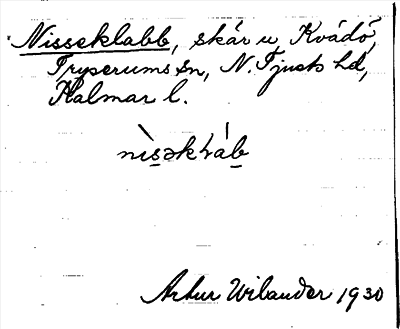 Nisseklabb, skär u Kvädö,
Tryserums sn, N. Tjusts hd,
Kalmar l.
nìsəkláb
Artur Wilander 1930